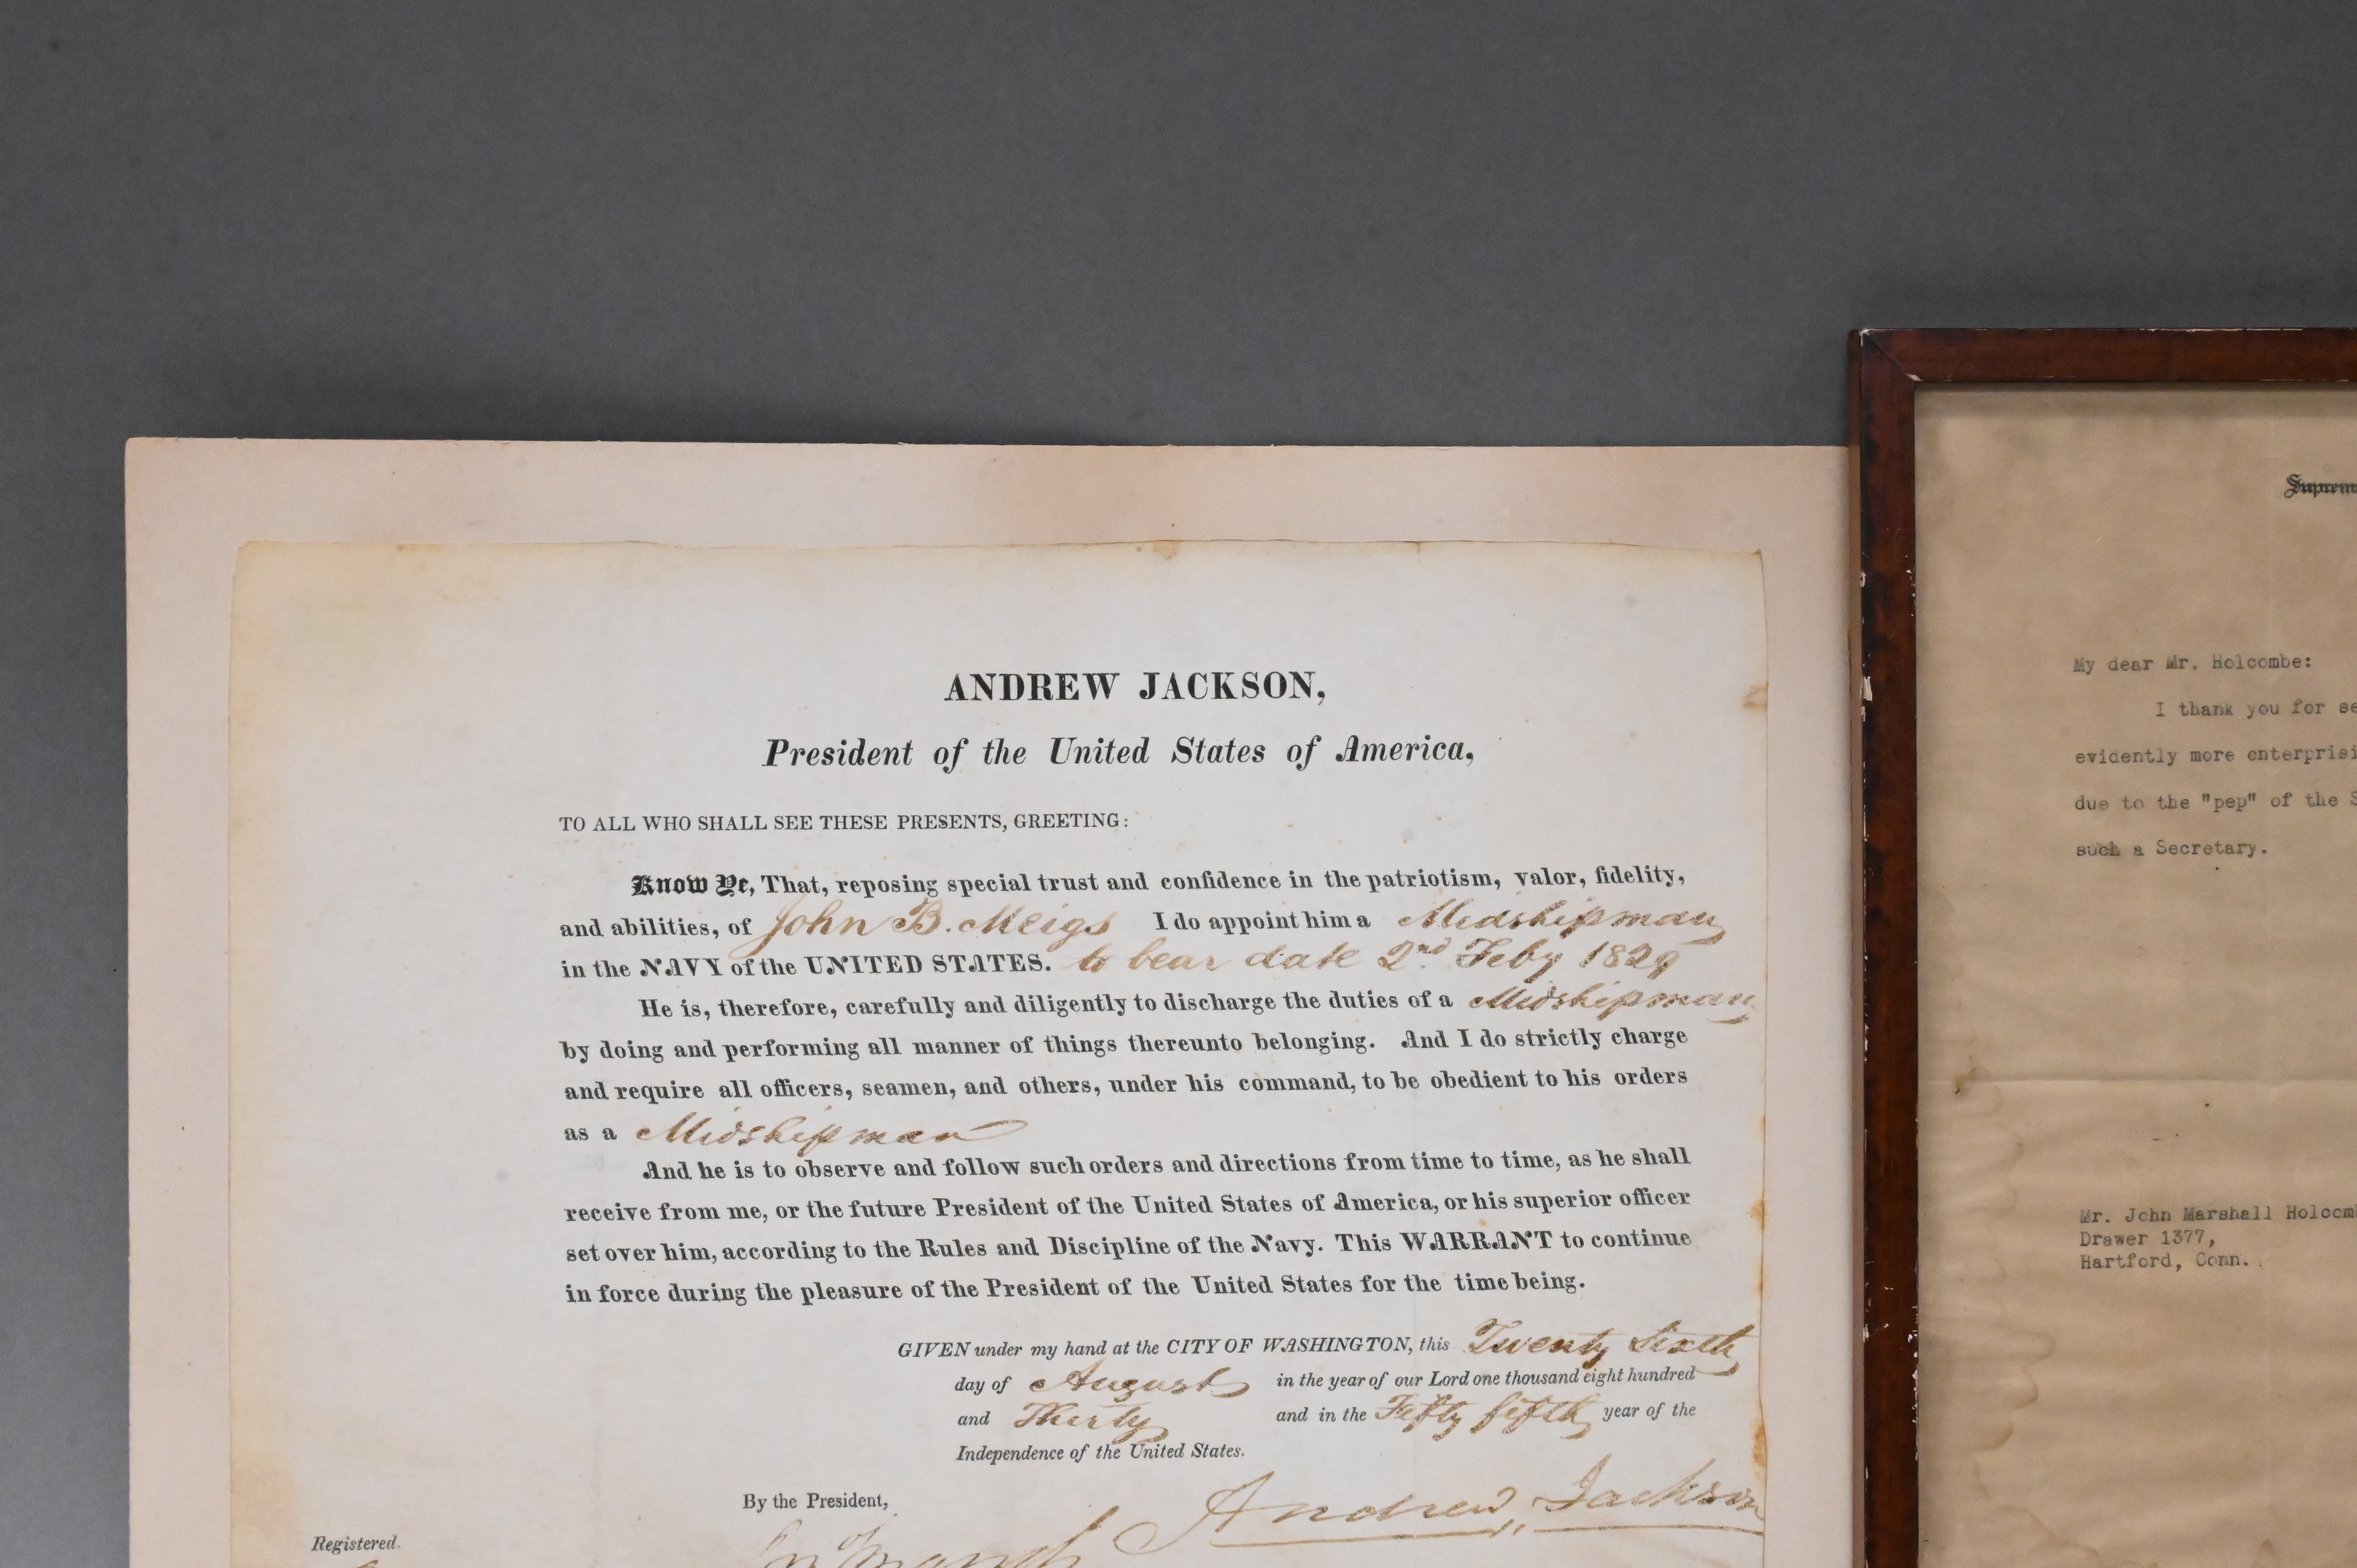 ANDREW JACKSON,
President of the United States of America,
TO ALL WHO SHALL SEE THESE PRESENTS, GREETING:
Know Ye, That, reposing special trust and confidence in the patriotism, valor, fidelity,
and abilities, of John B. Meigs I do appoint him a Midshipman
in the NAVY of the UNITED STATES. to bear date 2nd Feby 1829
He is, therefore, carefully and diligently to discharge the duties of a Midshipman
by doing and performing all manner of things thereunto belonging. And I do strictly charge
and require all officers, seamen, and others, under his command, to be obedient to his orders
as a Midshipman
And he is to observe and follow such orders and directions from time to time, as he shall
receive from me, or the future President of the United States of America, or his superior officer
set over him, according to the Rules and Discipline of the Navy. This WARRANT to continue
in force during the pleasure of the President of the United States for the time being.
GIVEN under my hand at the CITY OF WASHINGTON, this Twenty Sixth
day of August in the year of our Lord one thousand eight hundred
and Thirty and in the Fifty fifth year of the
Independence of the United States.
Andrew Jackson
By the President,
Registered.
My dear Mr. Holcombe:
I thank you for se
evidently more enterprisi
due to the "pep" of the S
such a Secretary.
Mr. John Marshall Holcom
Drawer 1377,
Hartford, Conn.